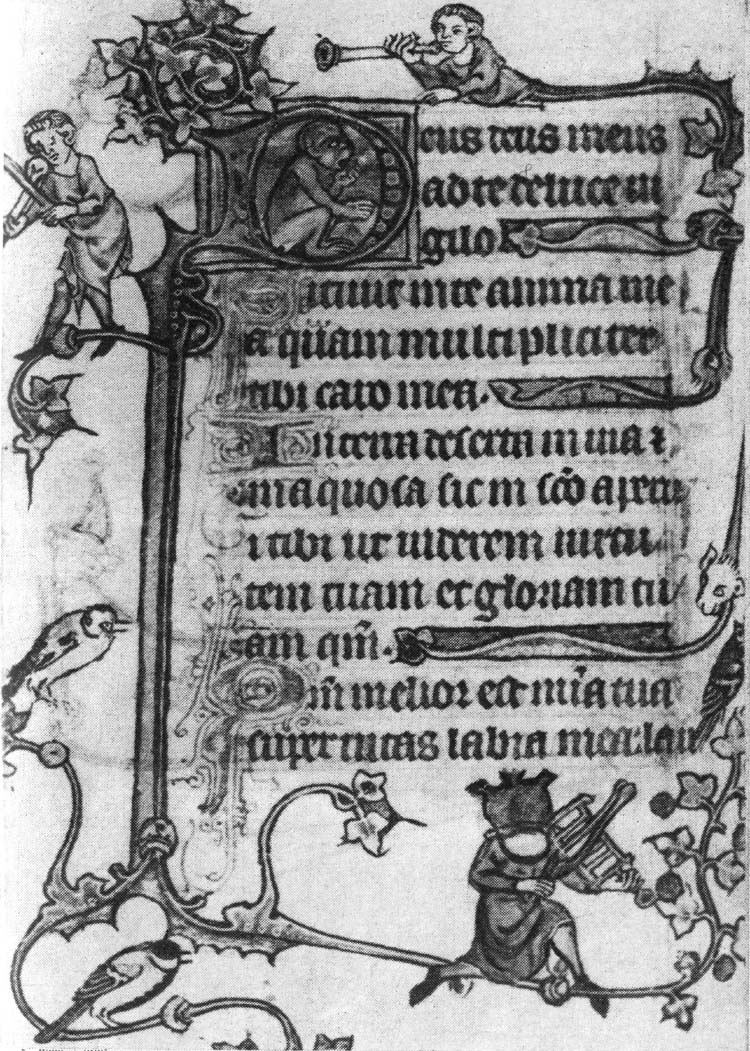 Deus deus meus
ad te de luce ui
gilo
Sitiuit in te anima me
a quam multipliciter
tibi caro mea.
In terra deserta in uia ⁊
inaquosa sic in sc̄o aparu
i tibi ut uiderem uirtu
tem tuam et gloriam tu
am qm̄.
Qm̄ melior est mīa tua
super uitas labia mea lau